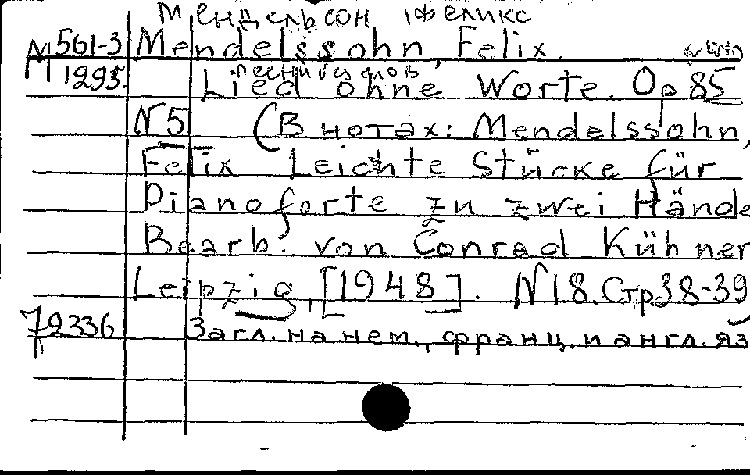 Мендельсон, Феликс
М 561-3 Mendelssohn, Felix.
М 1295. Lied ohne Worte. Op 85
Песни без слов
N 5 (В нотах: Mendelssohn,
Felix Leichte Stücke für
Pianoforte zu zwei Hände
Bearb. von Conrad Kühner
Leipzig, [1948]. N 18. Стр 38-39
79336 Загл. на нем., франц. и англ. яз